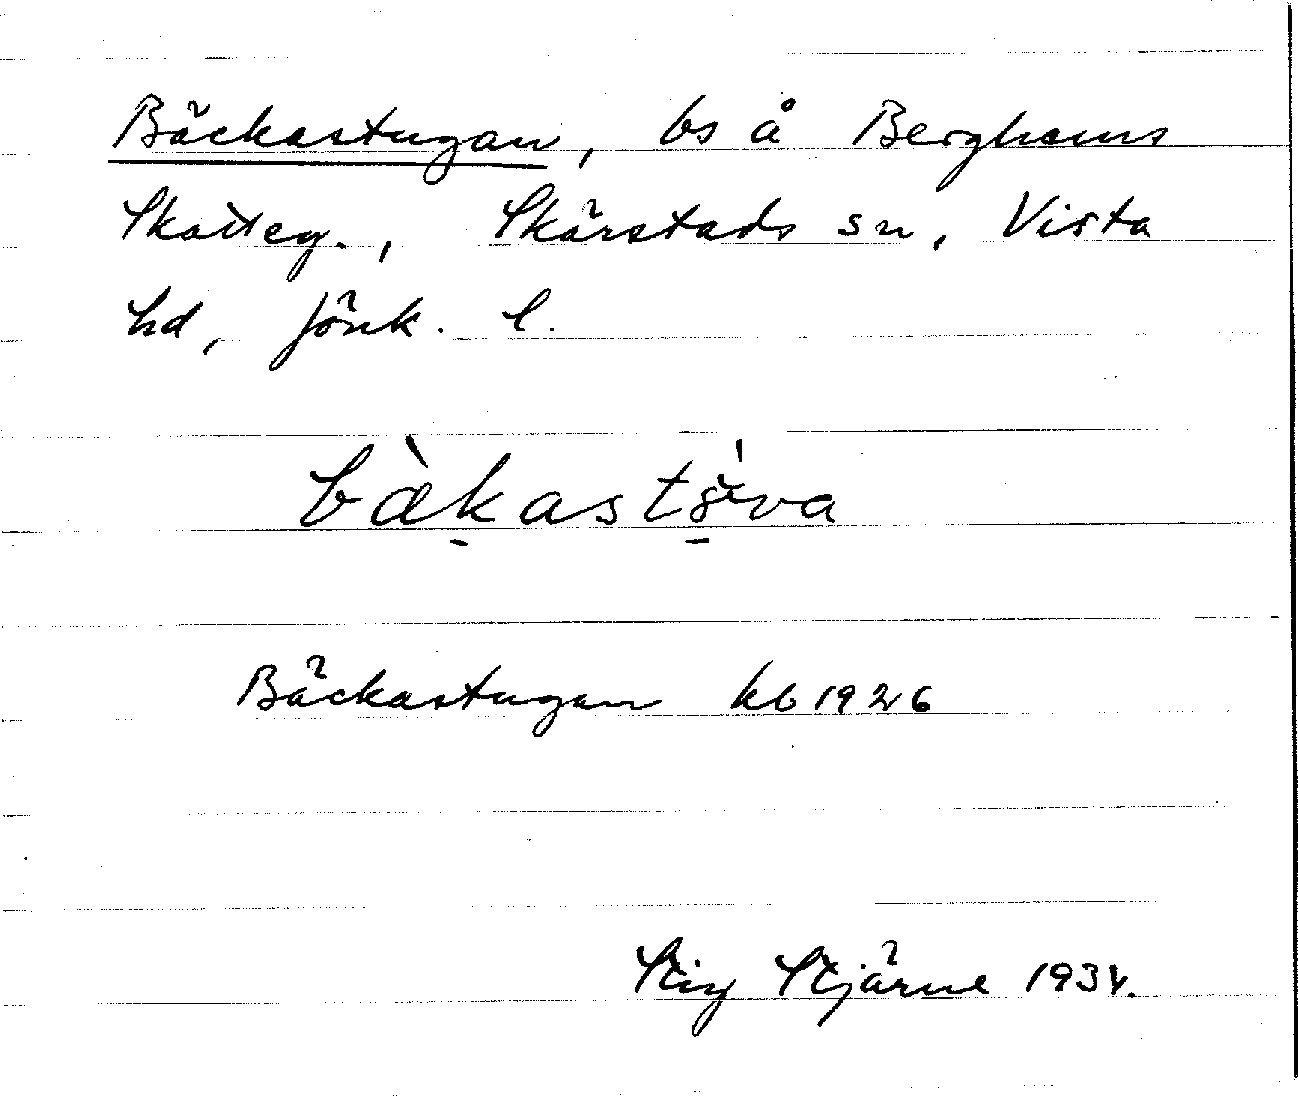 Bäckastugan, bs å Berghems
Skatteg., Skärstads sn, Vista
hd, Jönk. l.
bæ̀kastǿva
Bäckastugan kb 1926
Stig Stjärne 1934.